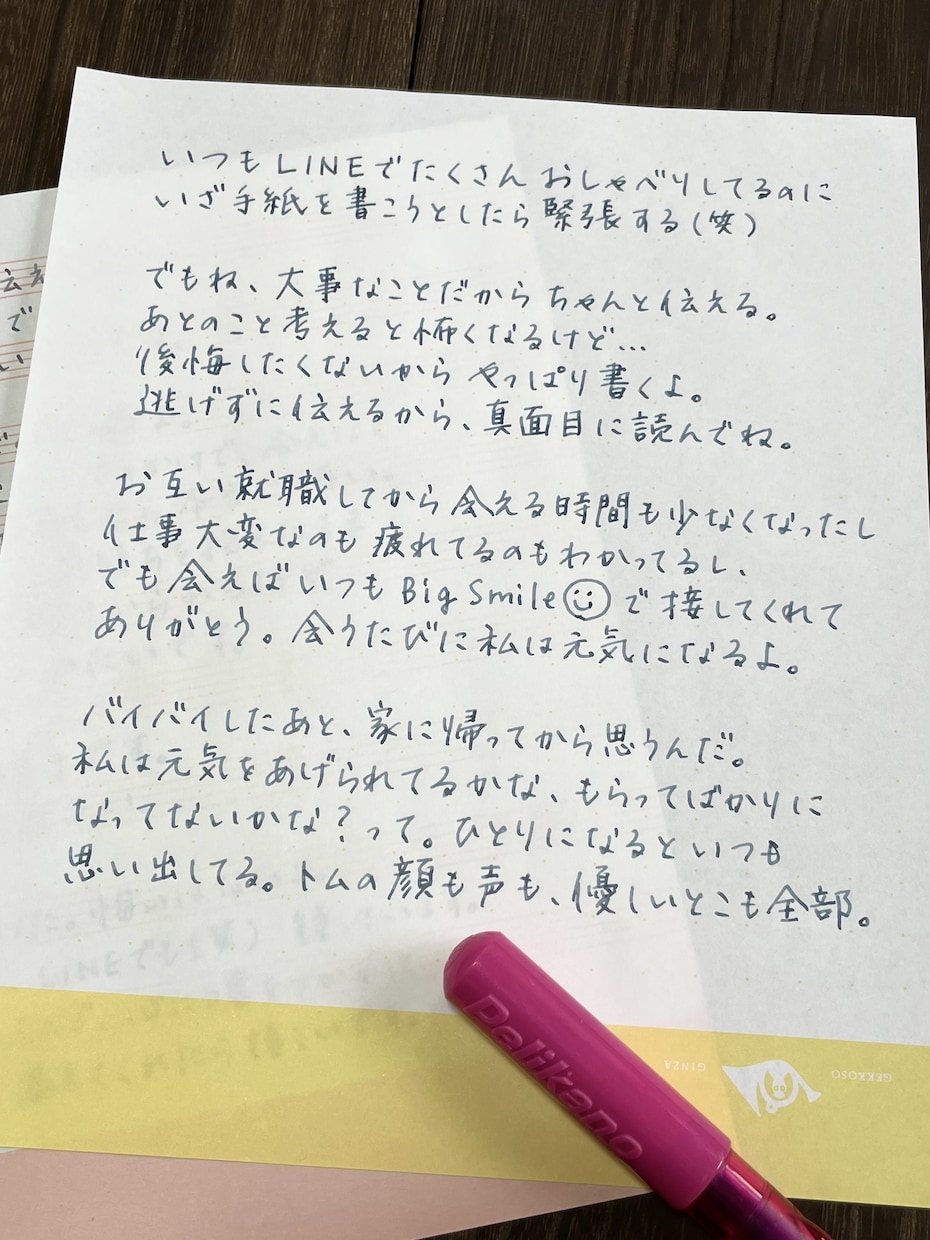 いつもLINEでたくさんおしゃべりしてるのに
いざ手紙を書こうとしたら緊張する(笑)
でもね、大事なことだからちゃんと伝える。
あとのこと考えると怖くなるけど…
後悔したくないからやっぱり書くよ。
逃げずに伝えるから、真面目に読んでね。
お互い就職してから会える時間も少なくなったし
仕事大変なのも疲れてるのもわかってるし、
でも会えばいつもBig Smile☺で接してくれて
ありがとう。会うたびに私は元気になるよ。
バイバイしたあと、家に帰ってから思うんだ。
私は元気をあげられてるかな、もらってばかりに
なってないかな?って。ひとりになるといつも
思い出してる。トムの顔も声も、優しいとこも全部。
Pelikano
GEKKOSO
GINZA
伝え
で
い